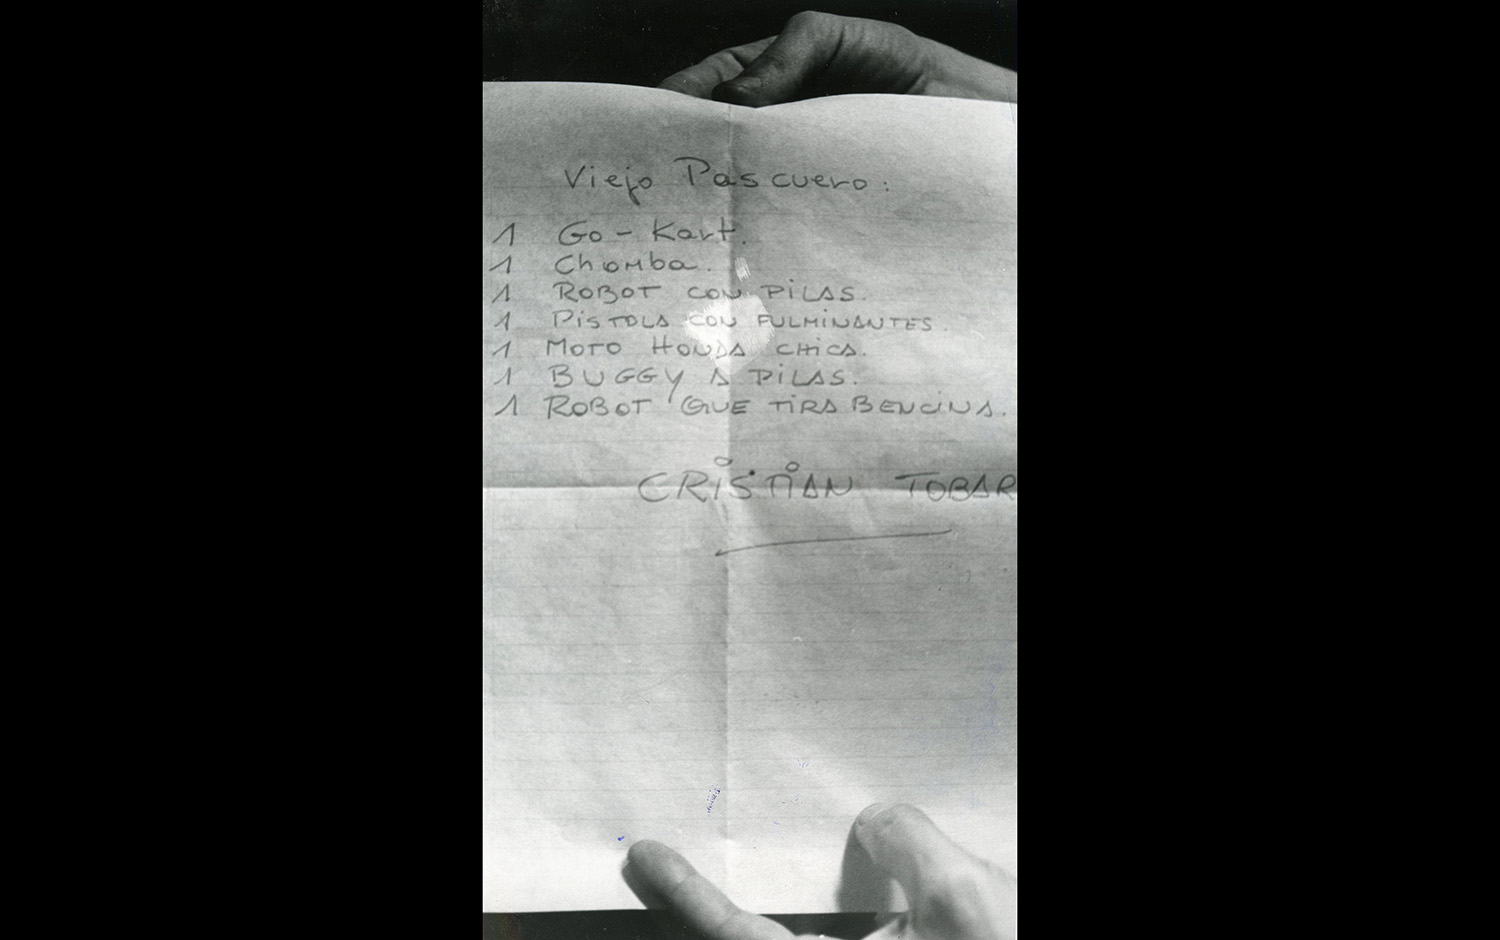 Viejo Pascuero:
1 Go-Kart.
1 Chomba.
1 ROBOT CON PILAS.
1 PISTOLA CON FULMINANTES.
1 MOTO HONDA CHICA.
1 BUGGY A PILAS.
1 ROBOT QUE TIRA BENCINA.
CRISTIAN TOBAR